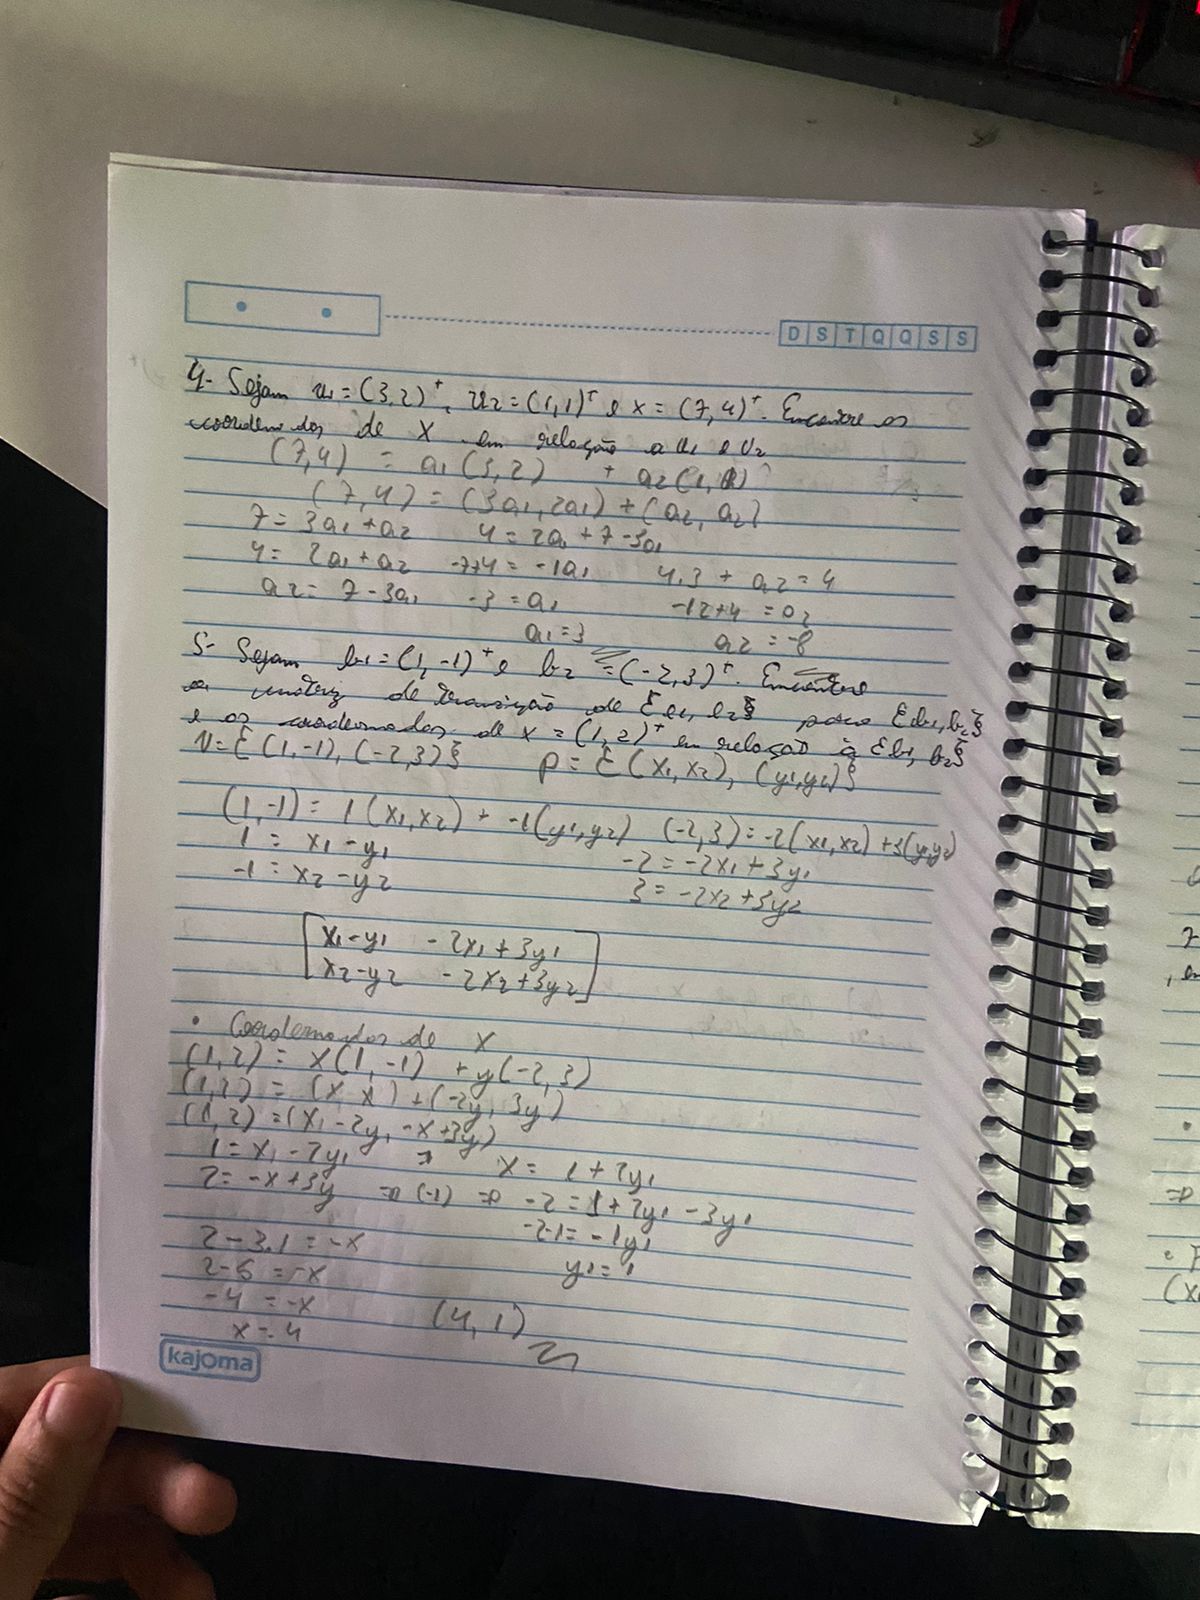 D S T Q Q S S
4- Sejam u1 = (3,2)ᵀ, u2 = (1,1)ᵀ e x = (7,4)ᵀ. Encontre as
coordenadas de x em relação a u1 e u2
(7,4) = a1(3,2) + a2(1,1)
(7,4) = (3a1, 2a1) + (a2, a2)
7 = 3a1 + a2 4 = 2a1 + 7 - 3a1
4 = 2a1 + a2 -7+4 = -1a1 4.3 + a2 = 4
a2 = 7 - 3a1 -3 = a1 -12+4 = a2
a1 = 3 a2 = -8
5- Sejam b1 = (1,-1)ᵀ e b2 = (-2,3)ᵀ. Encontre
a matriz de transição de {e1, e2} para {b1, b2}
e as coordenadas de x = (1,2)ᵀ em relação à {b1, b2}
V = {(1,-1), (-2,3)} P = {(x1,x2), (y1,y2)}
(1,-1) = 1(x1,x2) + -1(y1,y2) (-2,3) = -2(x1,x2) + 3(y1,y2)
1 = x1 - y1 -2 = -2x1 + 3y1
-1 = x2 - y2 3 = -2x2 + 3y2
x1-y1 -2x1+3y1
x2-y2 -2x2+3y2
• Coordenadas de x
(1,2) = x(1,-1) + y(-2,3)
(1,2) = (x, x) + (-2y, 3y)
(1,2) = (x, -2y, -x+3y)
1 = x, -2y1 => x = 1 + 2y1
2 = -x+3y => (-1) => -2 = 1 + 2y1 - 3y1
-2-1 = -1y1
2 - 3.1 = -x y1 = 1
-4 = -x
x = 4 (4,1)
kajoma